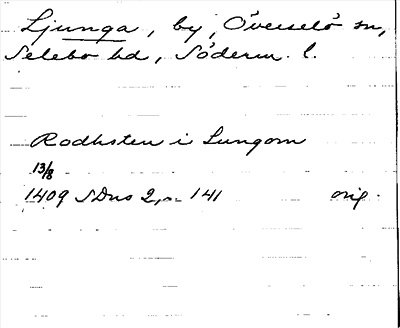 Ljunga, by, Överselö sn,
Selebo hd, Söderm. l.
Rodhsten i Lungom
13/8
1409 SDns 2, s. 141 orig.